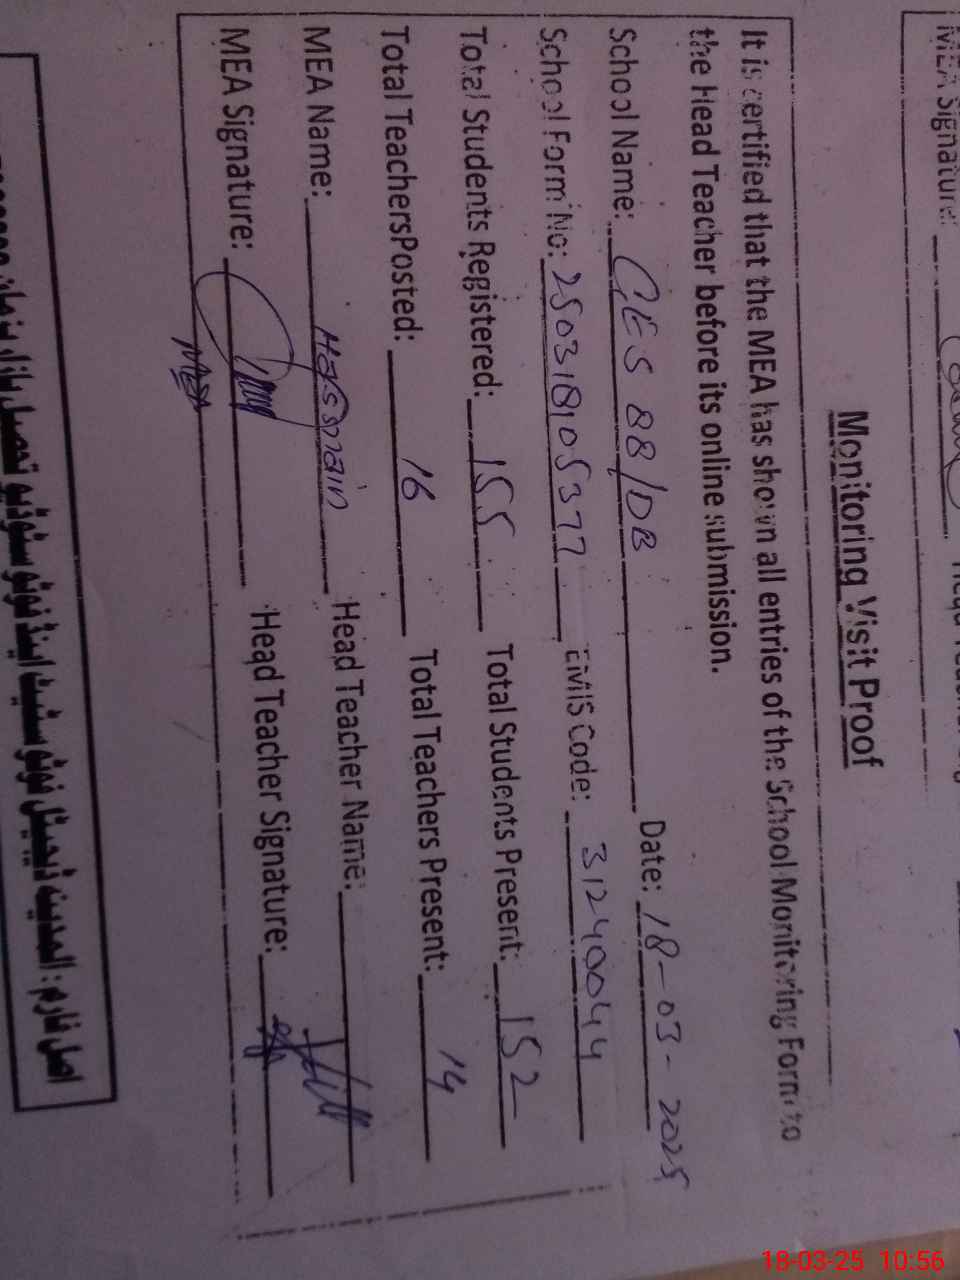 MEA Signature:
Monitoring Visit Proof
It is certified that the MEA has shown all entries of the School Monitoring Form to
the Head Teacher before its online submission.
School Name: GES 88/DB Date: 18-03-2025
School Form No: 250318105377 EMIS Code: 31240044
Total Students Registered: 155 Total Students Present: 152
Total TeachersPosted: 16 Total Teachers Present: 14
MEA Name: Hassnain Head Teacher Name:
MEA Signature: Head Teacher Signature:
MEA
اصل فارم: المدینہ ڈیجیٹل فوٹو سٹیٹ اینڈ فوٹو سٹوڈیو تحصیل بازار
18-03-25 10:56